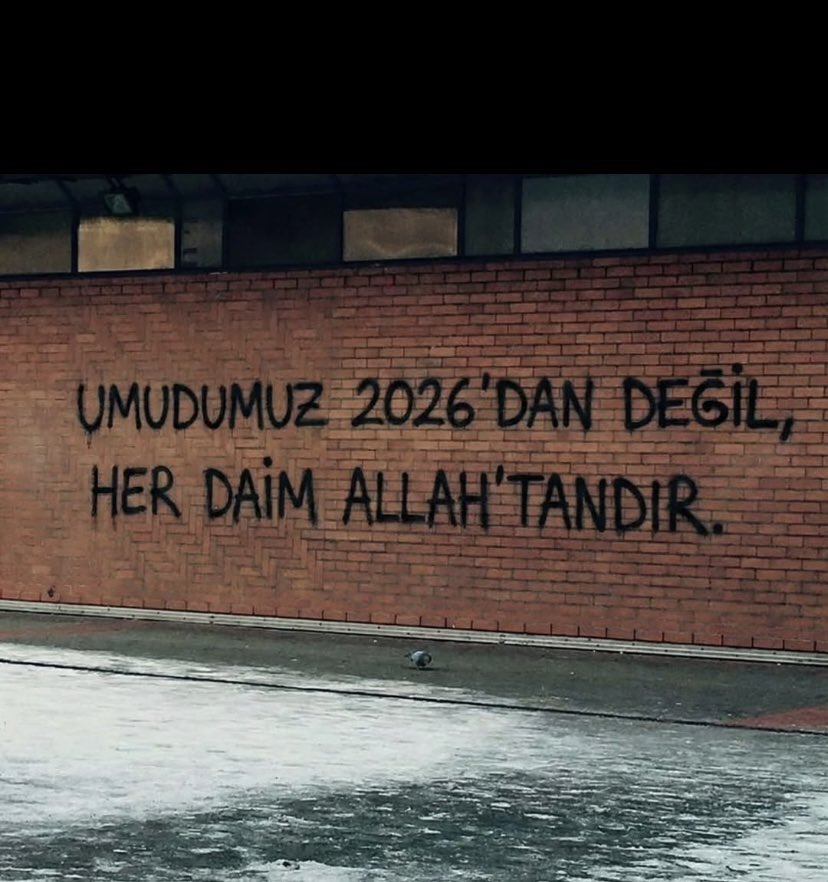 UMUDUMUZ 2026'DAN DEĞİL,
HER DAİM ALLAH'TANDIR.